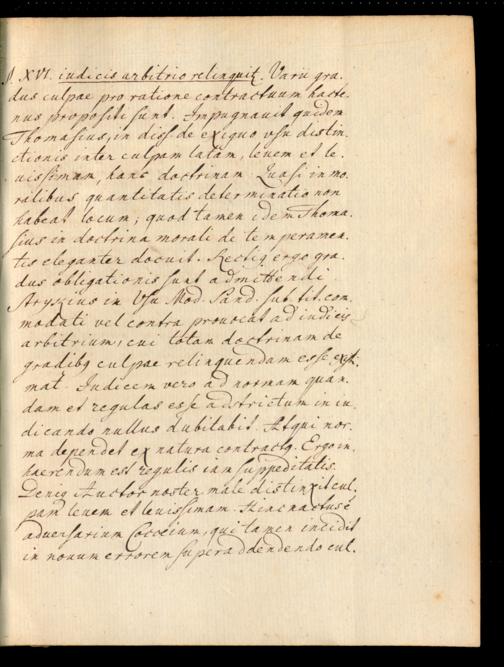 §. XVI. iudicis arbitrio relinquit. Varii gra-
dus culpae pro ratione contractuum hacte-
nus propositi sunt. Impugnavit quidem
Thomasius, in diss. de exiguo vsu distin-
ctionis inter culpam latam, leuem et le-
uissimam, hanc doctrinam. Quasi in mo-
ralibus quantitatis determinatio non
habeat locum; quod tamen idem Thoma-
sius in doctrina morali de temperamen-
tis eleganter docuit. Rectiq ergo gra-
dus obligationis sunt admittendi.
Stryckius in Vsu Mod. Pand. sub tit. com-
modati vel contra provocat ad iudicis
arbitrium, cui totam doctrinam de
gradibq culpae relinquendam esse existi-
mat. Iudicem vero ad normam quan-
dam et regulas esse adstrictum in iu-
dicando nullus dubitabit. Atqui nor-
ma dependet ex natura contractq. Ergo in-
haerendum est regulis iam suppeditatis.
Deniq Auctor noster male distinxit cul-
pam leuem et leuissimam. Hinc nactus é
adversarium Cocceium, qui tamen incidit
in nouum errorem superaddendendo cul-